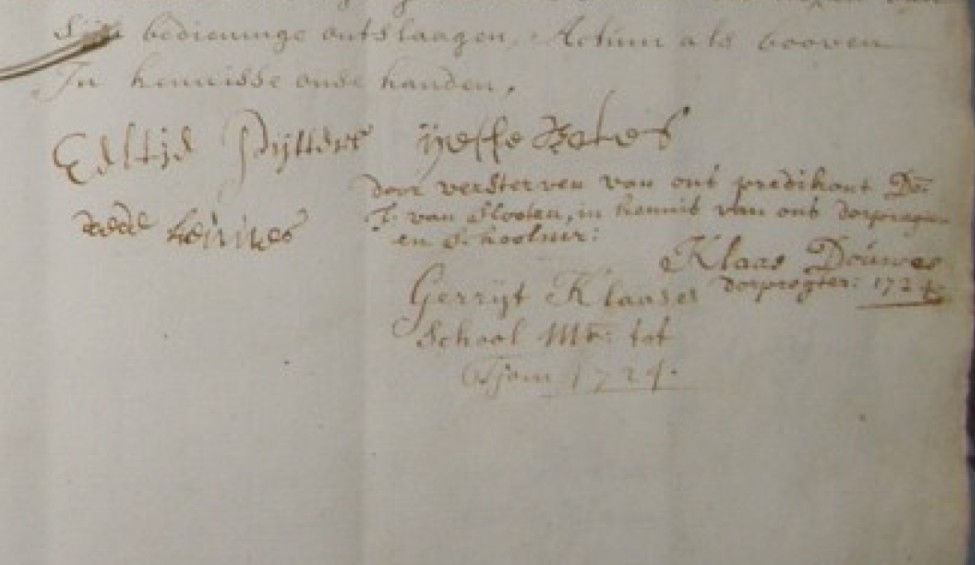 bedieninge ontslaagen, Actum als booven
In kennisse onse handen,
Edltje Pijtters ijesse Bokes
door versterven van ons predikant Do:
F. van Slooten, in kennis van ons dorpregter
en Schoolmr:
Klaas Douwes
dorpregter: 1724
Gerrijt Klaases
School Mr: tot
Tjom 1724.